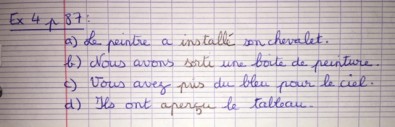 Ex 4 p 87:
a) Le peintre a installé son chevalet.
b) Nous avons sorti une boîte de peinture.
c) Vous avez pris du bleu pour le ciel.
d) Ils ont aperçu le tableau.